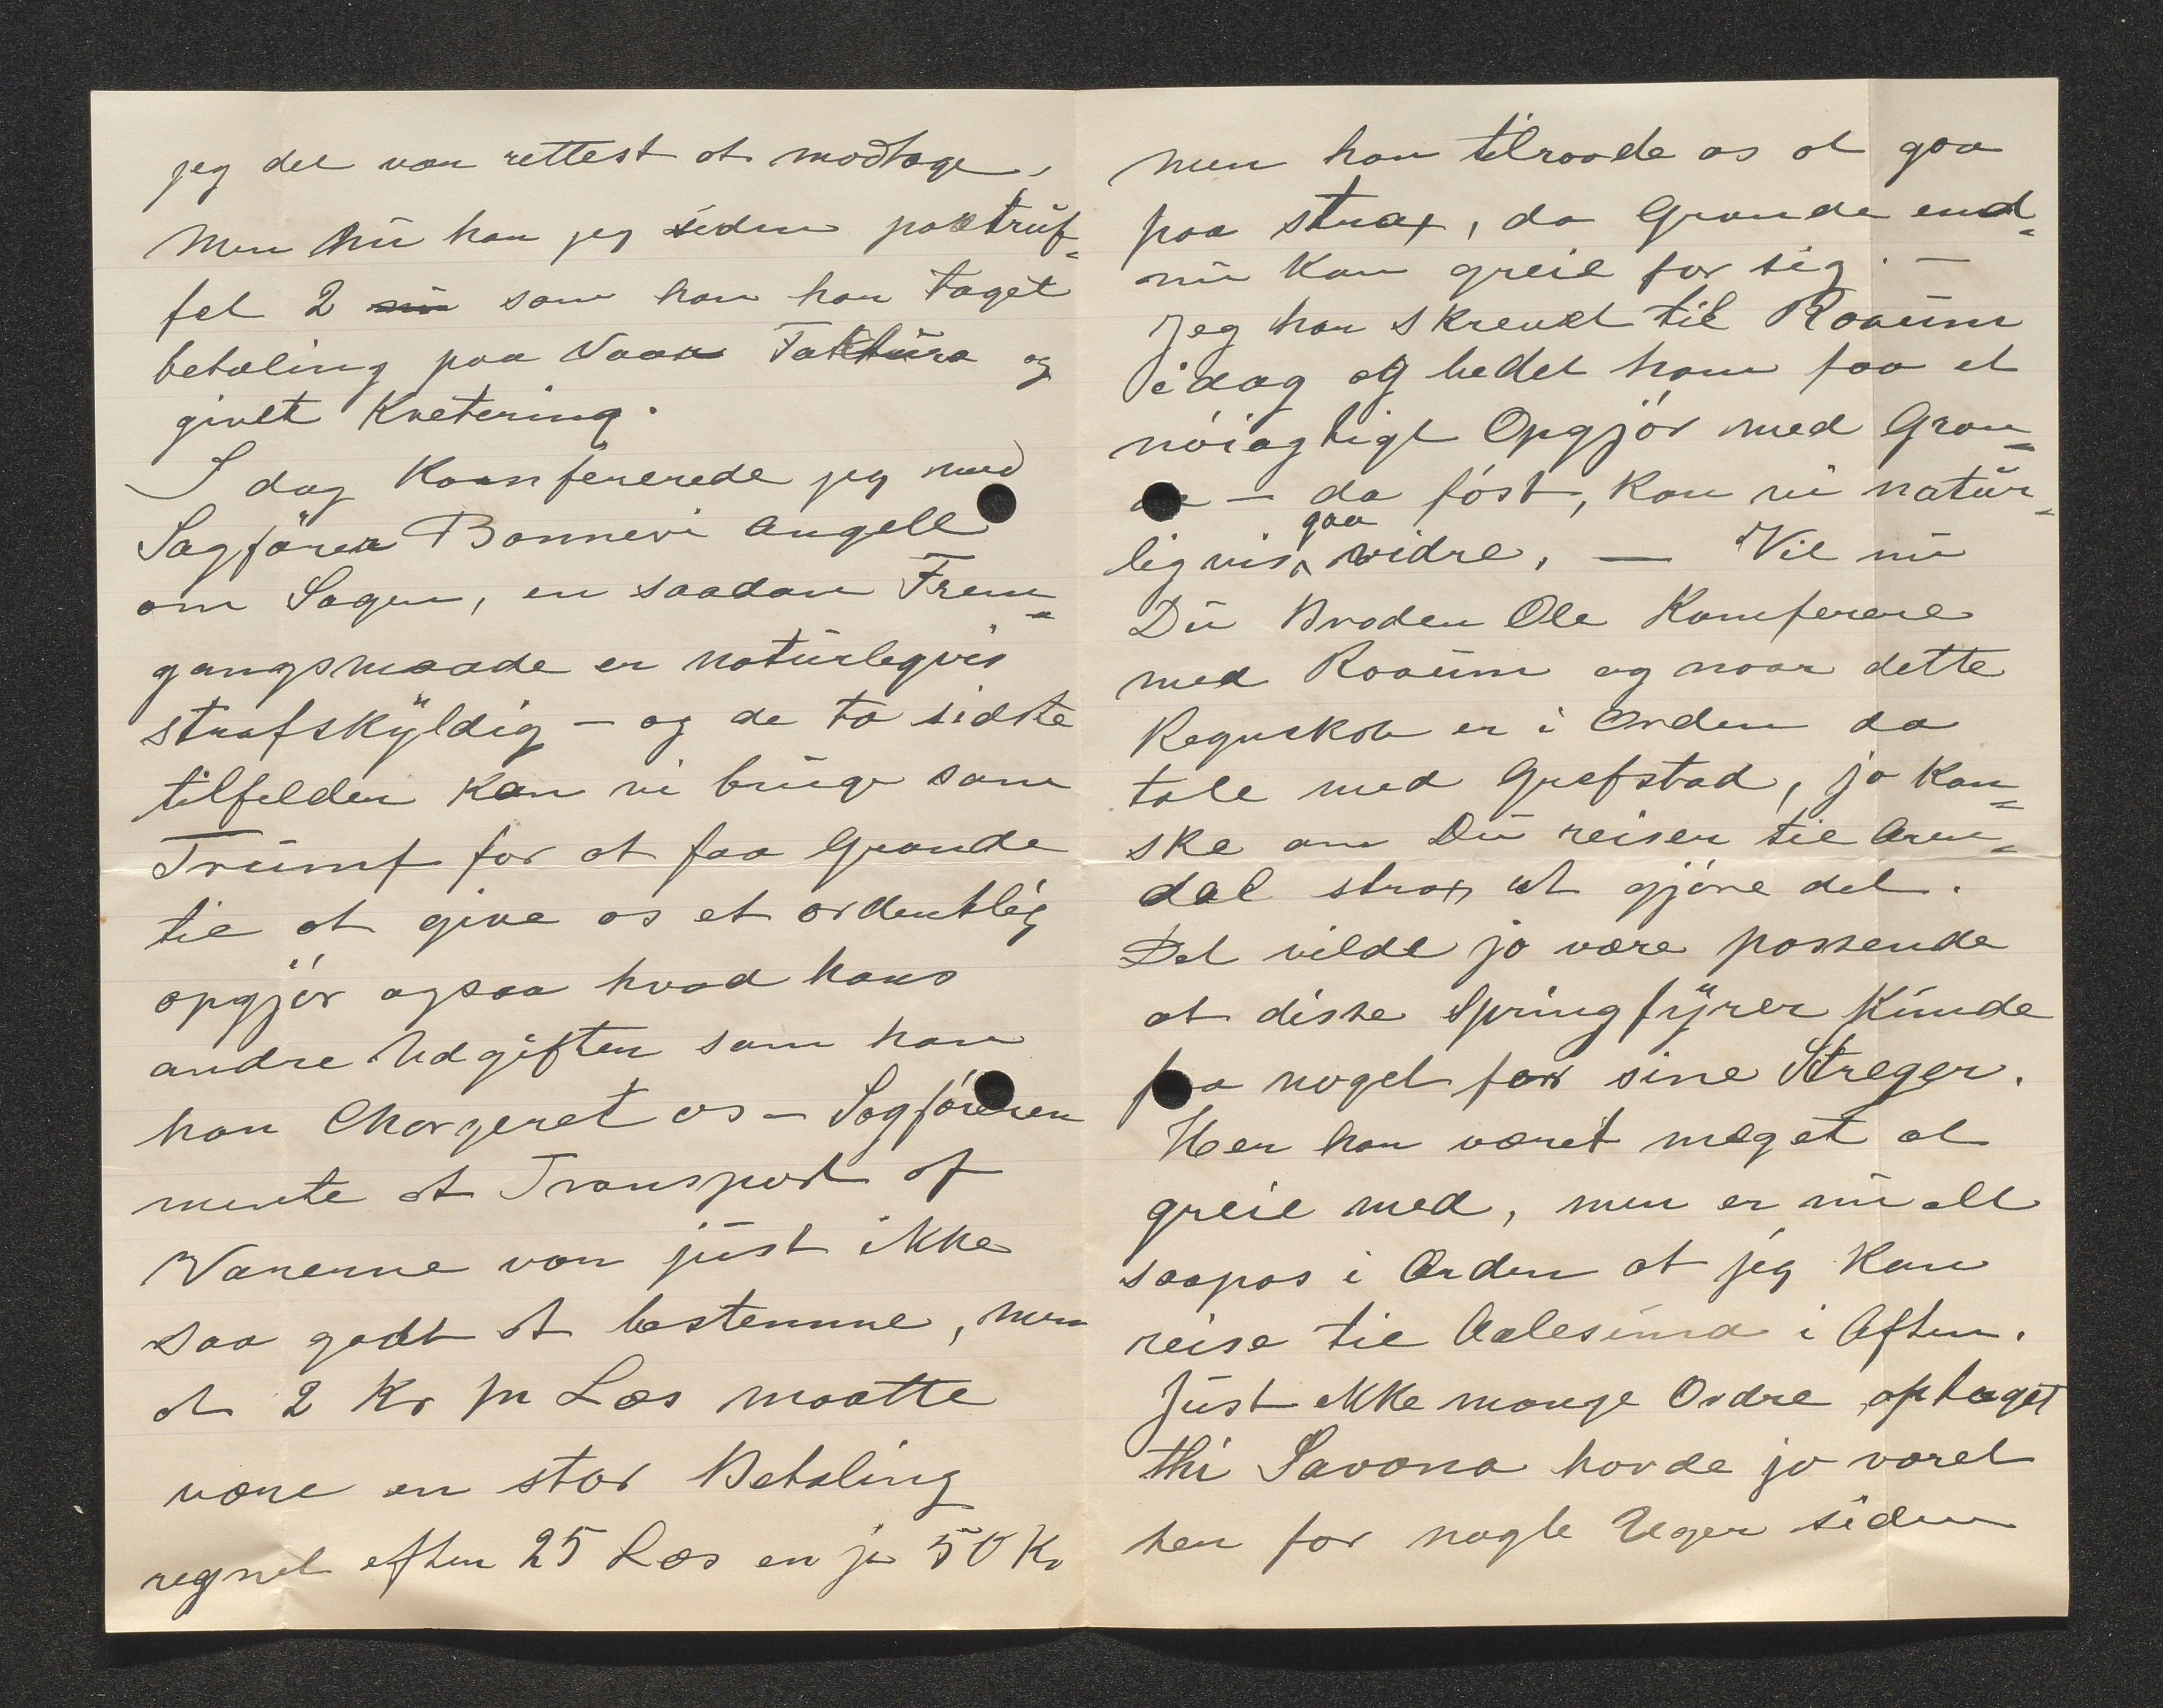 jeg det var rettest at modtage,
Men Nu har jeg siden paatruf-
fet 2 som han har taget
betaling paa Vaar Faktura og
givet Kvetering.
I dag Konsfererede jeg med
Sagförer Bonnevi Angell
om Sagen, en saadan Frem-
gangsmaade er naturligvis
strafskyldig – og de to sidste
tilfelder Kan vi bruge som
Trumf for at faa Grande
til at give os et ordentlig
opgjör ogsaa hvad hans
andre Udgifter som han
har Chargeret os – Sagföreren
mente at Transport af
Varerne var just ikke
saa godt at bestemme, men
at 2 Kr pr Læs maatte
være en stor Betaling
regnet efter 25 Læs en ja 50 Kr
men han tilraade os at gaa
paa strax, da Grande end-
nu Kan greie for sig. –
Jeg har skrevet til Roaum
idag og bedet ham faa et
nöiagtigt Opgjör med Gran-
de – da föst, Kan vi natur-
ligvis gaa vidre. – Vil nu
Du Broder Ole Konferere
med Roaum og naar dette
Regnskab er i Orden da
tale med Grefstad, ja Kan-
ske om Du reiser til Aren-
dal strax at gjöre det.
Det vilde jo være passende
at disse Springfyrer Kunde
faa noget for sine Streger.
Her har været meget at
greie med, men er nu alt
saapas i Orden at jeg Kan
reise til Aalesund i Aften.
Just ikke mange Ordre optaget
thi Savona havde jo varet
her for nogle Uger siden